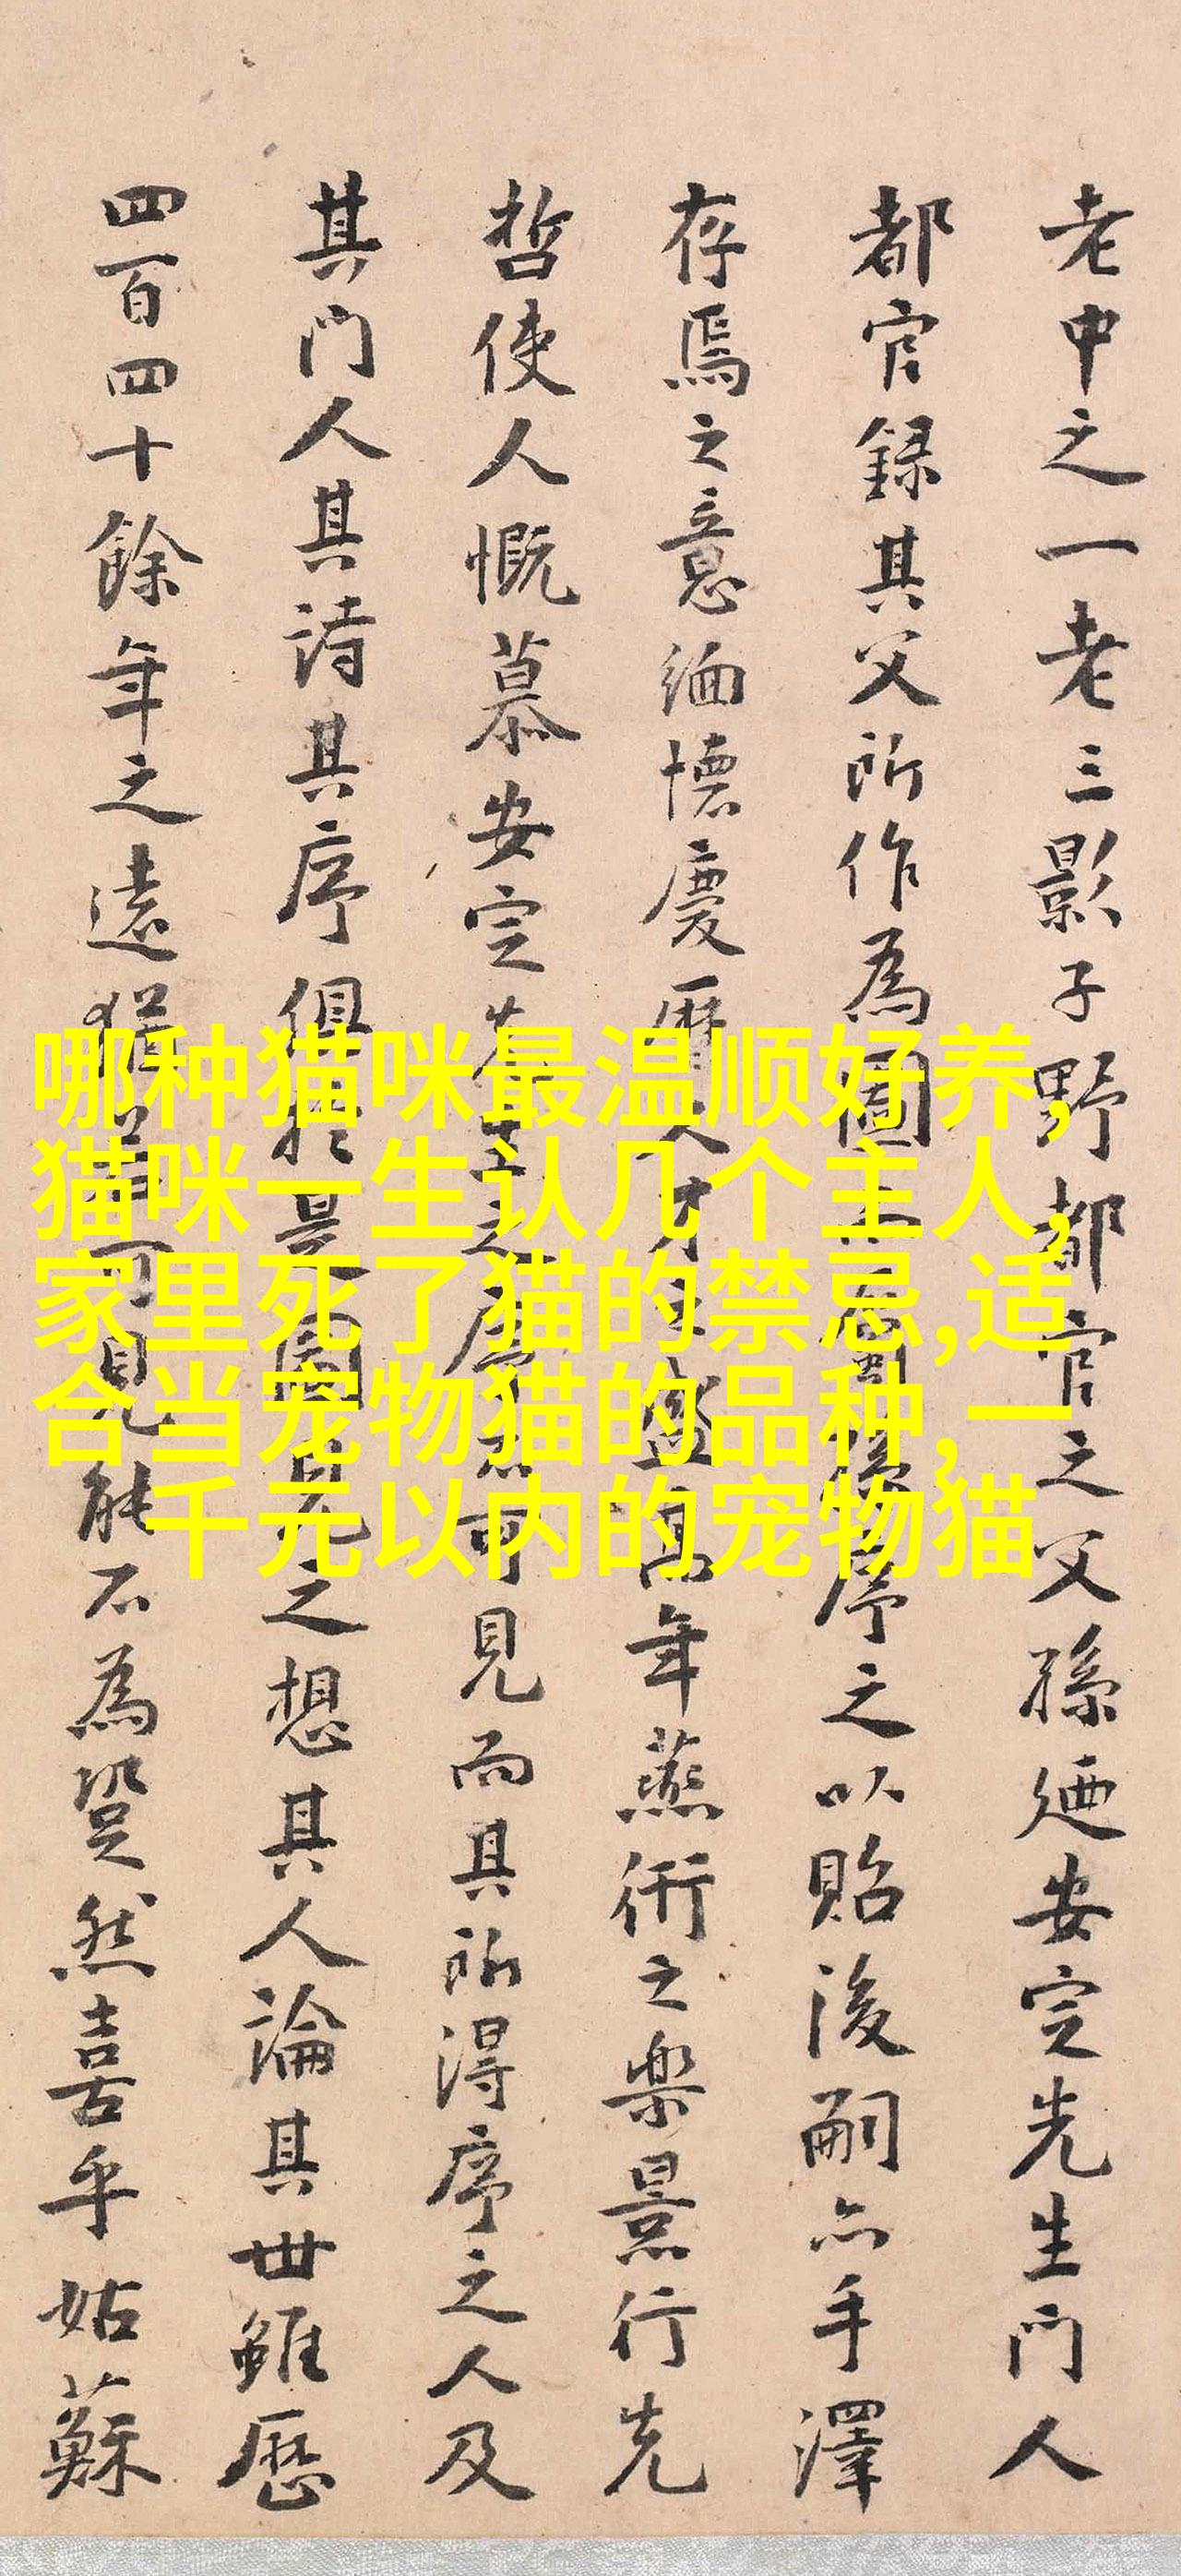 老中之一老三影子野都官之父孫廼安定先生門人
都官録其父所作為圖序之以貽後嗣亦手澤
存焉之意緬懷慶曆人才盛髙年燕衎之樂景行先
哲使人慨慕安定可見而其所得序之人及
其門人其詩其序俱於是圖見之想其人論其世雖歷
四百四十餘年之遠猶可見能不為跫然喜乎姑蘇
哪种猫咪最温顺好养,
猫咪一生认几个主人,
家里死了猫的禁忌,适
合当宠物猫的品种,一
千元以内的宠物猫